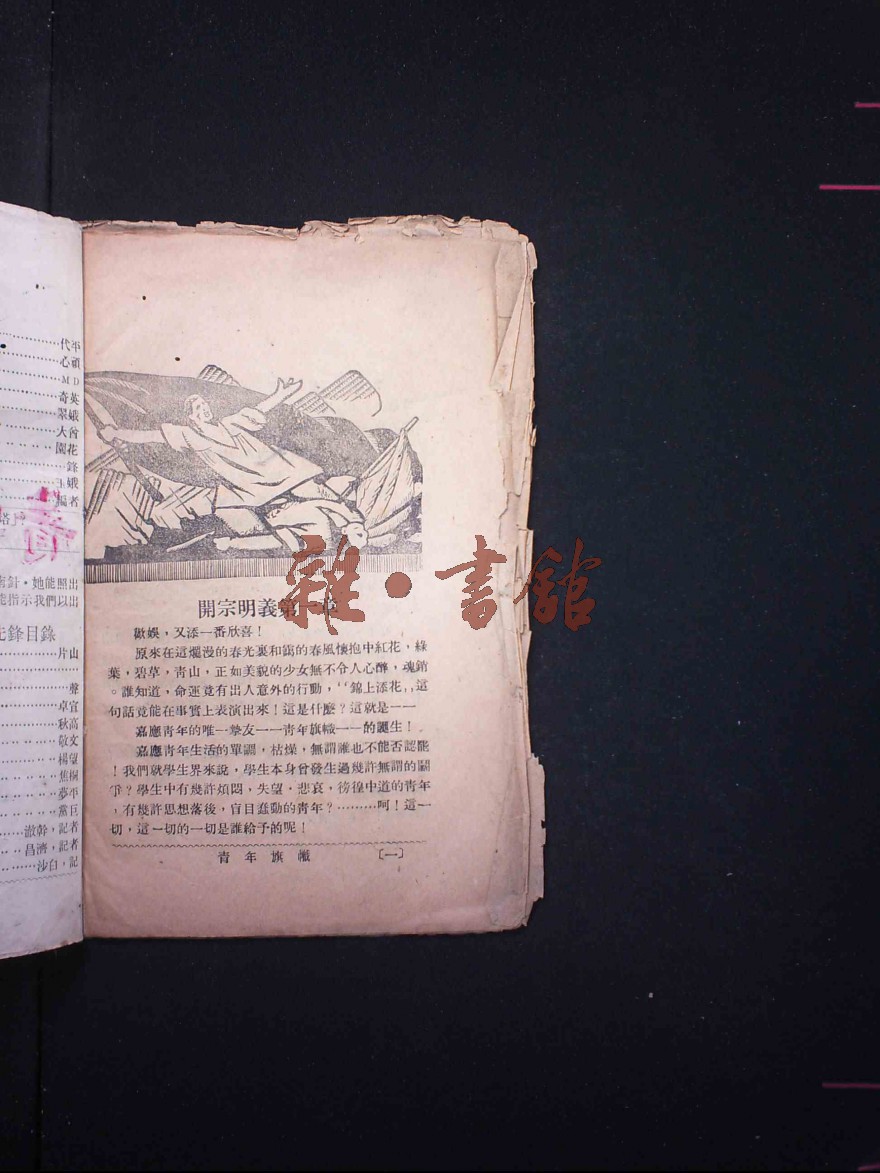 平代
頑心
MD
英奇
娥翠
曾大
花園
鋒
玉娥
編者
塔」
南針・她能照出
能指示我們以出
先鋒目錄
片山
聲
宣卓
高秋
文敬
望楊
桐焦
平夢
巨黨
者記,幹澈
者記,濟昌
記,白沙
雜・書館
開宗明義第一章
歡娛,又添一番欣喜!
原來在這爛漫的春光裏和藹的春風懷抱中紅花,綠
葉,碧草,青山,正如美貌的少女無不令人心醉,魂銷
。誰知道,命運竟有出人意外的行動,“錦上添花”,這
句話竟能在事實上表演出來!這是什麼?這就是——
嘉應青年的唯一摯友——青年旗幟——的誕生!
嘉應青年生活的單調,枯燥,無謂誰也不能否認罷
!我們就學生界來說,學生本身曾發生過幾許無謂的鬭
爭?學生中有幾許煩悶,失望・悲哀・徬徨中道的青年
,有幾許思想落後,盲目蠢動的青年?………呵!這一
切,這一切的一切是誰給予的呢!
青年旗幟 〔一〕